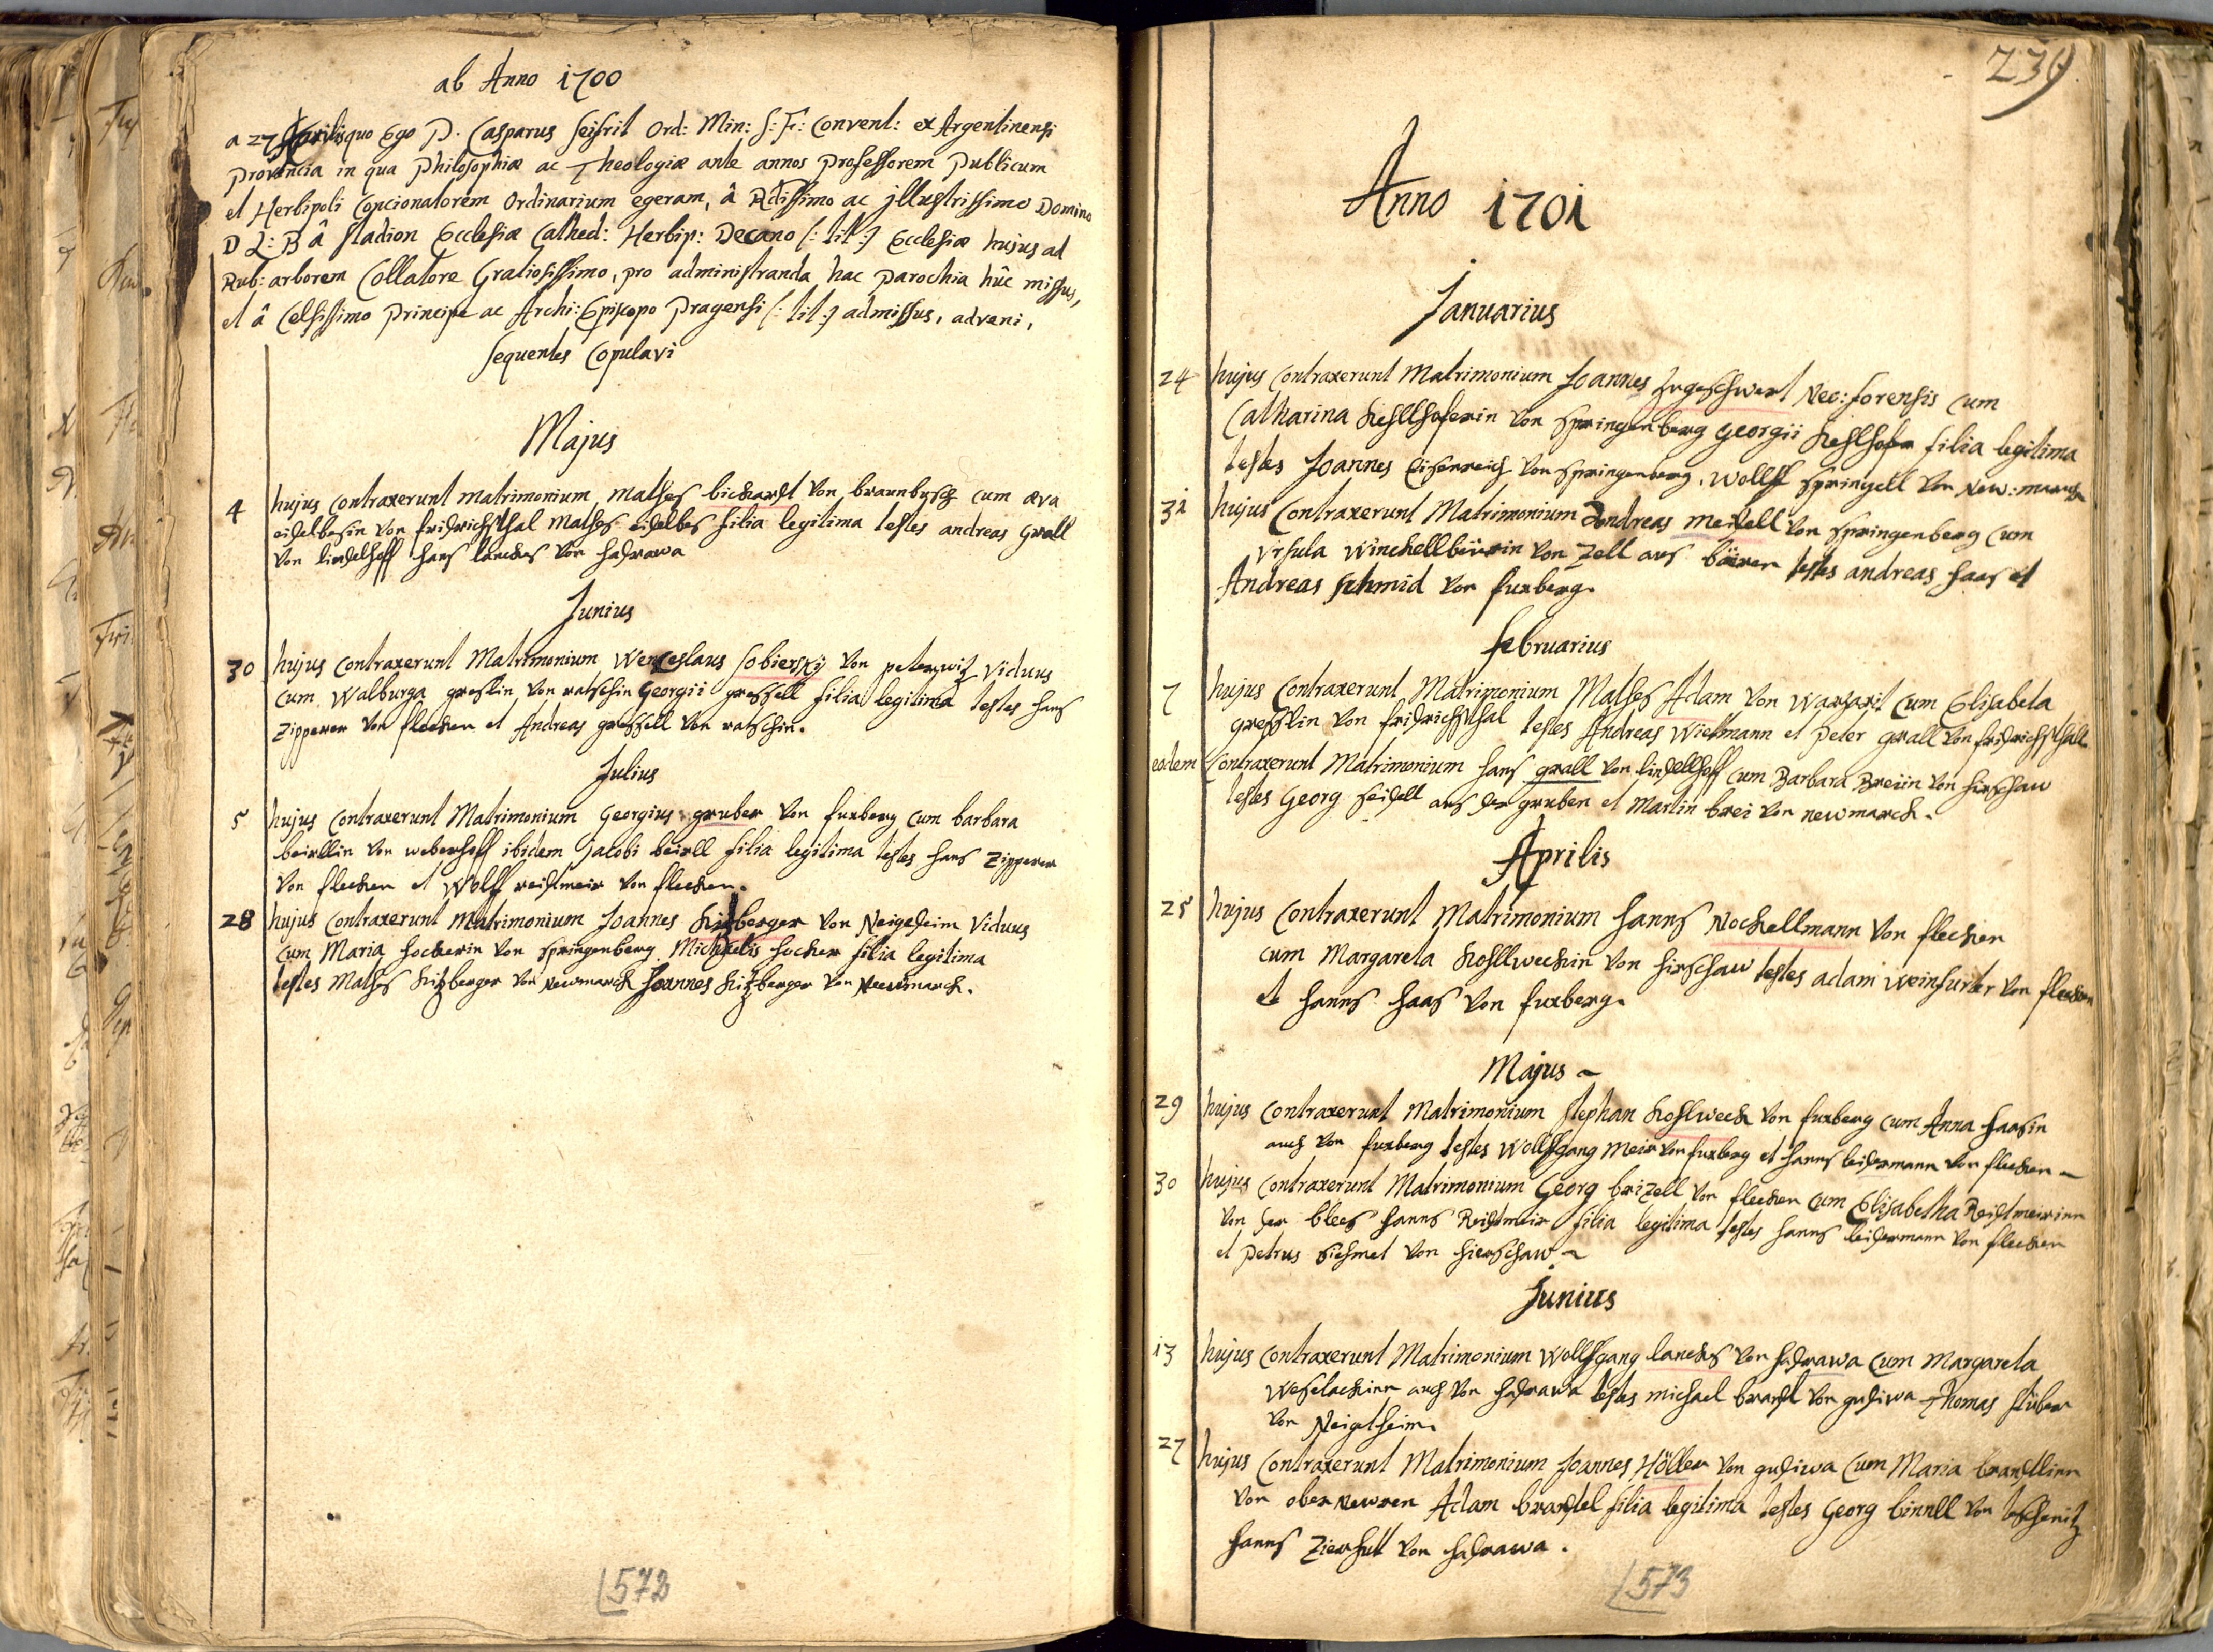 ab Anno 1700
a 27 Aprilis quo Ego P. Casparus Seifrit Ord: Min: S: Fr: Convent: ex Argentinensi
Provincia in qua Philosophiæ ac Theologiæ ante annos Professorem Publicum
et Herbipoli Concionatorem Ordinarium egeram, â Rdissimo ac jllustrissimo Domino
D L: B â Stadion Ecclesiæ Cathed: Herbip: Decano /: tit :/ Ecclesiæ hujus ad
Rub: arborem Collatore Gratiosissimo, pro administranda hac Parochia hûc missus,
et â Celsissimo Principe ac Archi: Episcopo Pragensi /: tit :/ admissus, adveni,
sequentes Copulavi
Majus
4 hujus Contraxerunt matrimonium Mathes bickardt von braunbusch cum æva
eidelbesin von fridrichsthal Mathes eidelbes filia legitima testes andreas Grall
von lindelhoff hans lanckes von hadrawa
Junius
30 hujus Contraxerunt Matrimonium Wenceslaus Sobiersky von peterwitz Viduus
cum Walburga gresslin von ratschin Georgii gressell filia legitima testes hans
Zipperer von flecken et Andreas gressell von ratschin.
Julius
5 hujus Contraxerunt Matrimonium Georgius gruber von fuxberg cum barbara
beirllin von weberhoff ibidem Jacobi beirll filia legitima testes hans Zipperer
von flecken et Wolff reidtmeir von flecken.
28 hujus Contraxerunt Matrimonium Joannes Kitzberger von Neigedeim Viduus
cum Maria hockerin von Springenberg Michaelis hocker filia legitima
testes Mathes Kitzberger von Newmarck Joannes Kitzberger von Newmarck.
572
239
Anno 1701
Januarius
24 hujus Contraxerunt Matrimonium Joannes Zugeschwert Neo: forensis cum
Catharina Kehllhoferin von Springenberg Georgii Kehlhofer filia legitima
testes Joannes Eisenreich von Springenberg. Wollff Springell von New: marck
31 hujus Contraxerunt Matrimonium Andreas Meixell von Springenberg cum
Ursula Winckellbeürin von Zell aus bäiren testes andreas haas et
Andreas schmid von fuxberg.
Februarius
7 hujus Contraxerunt Matrimonium Mathes Adam von Warzarit cum Elisabeta
gresslin von fridrichsthal testes Andreas Wietmann et Peter grall von fridrichsthall
eodem Contraxerunt Matrimonium hans grall von lindellhoff cum Barbara Breiin von hirschaw
testes Georg seidell aus der gruben et Martin brei von newmarck.
Aprilis
25 hujus Contraxerunt Matrimonium hanns Nockellmann von flecken
cum Margareta Kohllweckin von hirschaw testes adam weinfurter von flecken
et hanns haas von fuxberg.
Majus
29 hujus Contraxerunt Matrimonium stephan Kohlweck von fuxberg cum Anna haasin
auch von fuxberg testes Wollfgang Meir von fuxberg et hanns leidermann von flecken
30 hujus Contraxerunt Matrimonium Georg brizell von flecken cum Elisabetha Reidtmeirinn
von der blees hanns Reidtmeir filia legitima testes hanns leidermann von flecken
et Petrus siehmet von hierschaw
Junius
13 hujus Contraxerunt Matrimonium Wollfgang lanckes von hadrawa cum Margareta
Weselackinn auch von hadrawa testes michael brandl von gudiwa Thomas stüber
von Neigetheim.
27 hujus Contraxerunt Matrimonium Joannes Höller von gudiwa cum Maria brandlinn
von ober newren Adam brandel filia legitima testes Georg binnll von teschenitz
hanns Zierhutt von hadrawa.
573